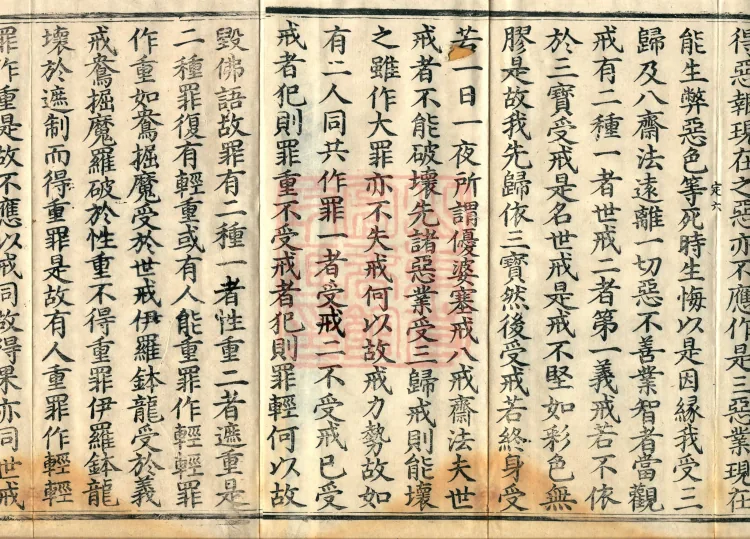 得惡報現在之惡亦不應作是三惡業現在
定六
能生弊惡色等死時生悔以是因緣我受三
歸及八齋法遠離一切惡不善業智者當觀
戒有二種一者世戒二者第一義戒若不依
於三寶受戒是名世戒是戒不堅如彩色無
膠是故我先歸依三寶然後受戒若終身受
若一日一夜所謂優婆塞戒八戒齋法夫世
戒者不能破壞先諸惡業受三歸戒則能壞
之雖作大罪亦不失戒何以故戒力勢故如
有二人同共作罪一者受戒二不受戒已受
戒者犯則罪重不受戒者犯則罪輕何以故
毀佛語故罪有二種一者性重二者遮重是
二種罪復有輕重或有人能重罪作輕輕罪
作重如鴦掘魔受於世戒伊羅鉢龍受於義
戒鴦掘魔羅破於性重不得重罪伊羅鉢龍
壞於遮制而得重罪是故有人重罪作輕輕
罪作重是故不應以戒同故得果亦同世戒